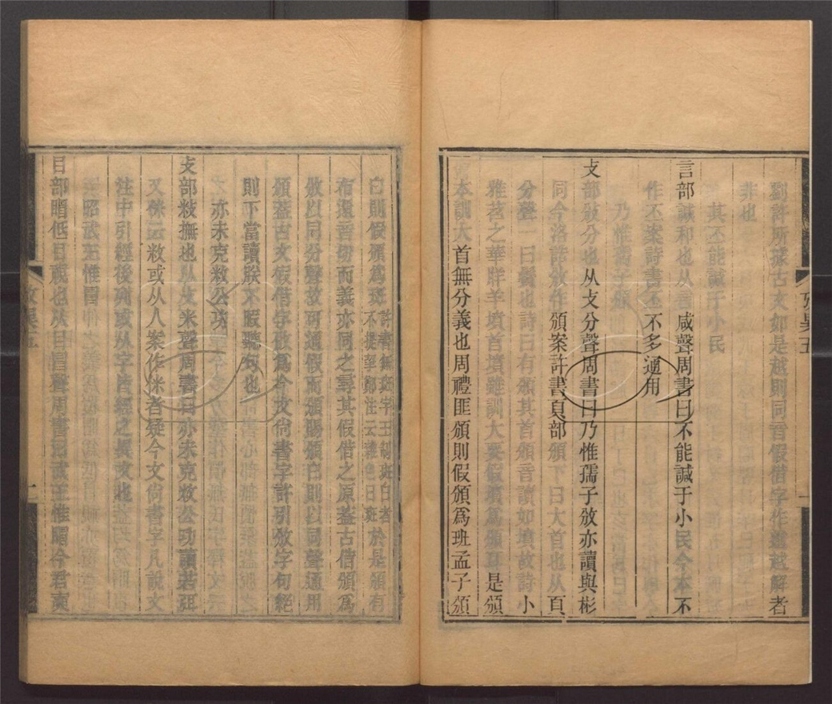 劉許所據古文如是越則同音假借字作越解者
非也
其丕能諴于小民
言部諴和也从言咸聲周書曰不能諴于小民今本不
作丕案詩書丕不多通用
乃惟孺子攽
攴部攽分也从攴分聲周書曰乃惟孺子攽亦讀與彬
同今洛誥攽作頒案許書頁部頒下曰大首也从頁
分聲一曰鬢也詩曰有頒其首頒音讀如墳故詩小
雅苕之華牂羊墳首墳雖訓大要假墳爲頒耳是頒
本訓大首無分義也周禮匪頒則假頒爲班孟子頒
攷異五
白則假頒爲斑許書無斑字王制斑白者不提挈鄭注云雜色曰斑於是頒有
布還音切而義亦同之尋其假借之原蓋古借頒爲
攽以同分聲故可通假而頒賜頒白則以同聲通用
頒蓋古文假借字攽爲今文尚書字許引攽字句絕
則下當讀朕不暇聽句也
亦未克敉公功
攴部敉撫也从攴米聲周書曰亦未克敉公功讀若弭
又侎云敉或从人案作侎者疑今文尚書字凡說文
注中引經後列或从字皆經之異文也
昭武王惟冒
目部䁋低目視也从目冒聲周書曰武王惟䁋今君奭
攷異五